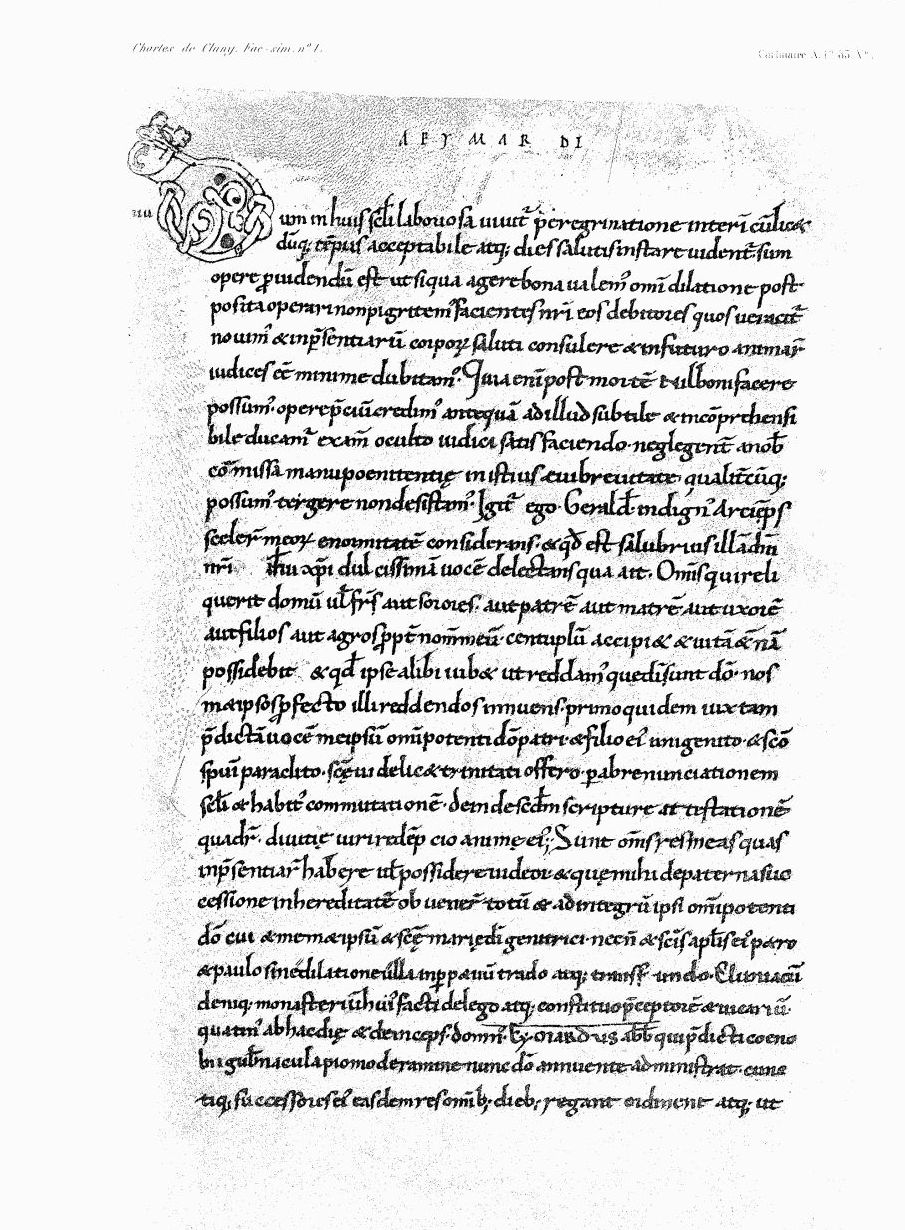 Chartes de Cluny. Fac-sim. nº 1.
Cartulaire A. fº 85. Vº.
AEYMARDI
um in huius sc̄li laboriosa uiuit̄ p̄eregrinatione interī cūlic&
dūq; tēpus acceptabile atq; dies salutis instare uident̄ sum
opere p̱uidendū est ut siqua agere bona ualem̉ omī dilatione post
posita operari non pigritem̉ facientes nr̄i eos debitores quos ueracit̄
nouim̉ & inp̄sentiarū corporꝝ saluti consulere & infuturo animar̄
iudices eē minime dubitam̉. Quia eni post mortē boni facere
possum̉. opere p̄ciū credim̉ antequā ad illud subtile & incōprehensi
bile ducam̉ exam̄ oculto iudici satisfaciendo neglegent̄ anob̄
cōmissa manu poenitentię in istius ęui breuitate qualit̄cūq;
possum̉ tergere non desistam̉. Igit̄ ego Gerald̉ indign̉ Arciēps
sceler̄ meorꝝ enormitatē considerans. & qđ est salubrius illā dn̄i
nr̄i ih̄u xp̄i dulcissimā uocē delectans qua ait. Om̄is qui reli
querit domū ul̄ fr̄s aut sorores. aut patrē aut matrē aut uxorē
aut filios aut agros p̱pt̄ nom̄ meū. centuplū accipi& & uitā &̄nā
possidebit. & qđ ipse alibi iub& ut reddam̉ quę dī sunt dō. nos
m&ipsos p̱fecto illi reddendos innuens. primo quidem iuxtam
p̄dictā uocē meipsū omīpotenti dō patri. & filio eỉ unigenito. & scō
spūi paraclito. scę̄ uidelic& trinitati offero. p̱ abrenunciationem
sc̄li & habit̉ commutationē. deinde scđm scripturę attestationē
quadr̄. diuitię uiri redēpcio animę eỉ; Sunt om̄s res meas quas
inp̄sentiar̄ habere ul̄ possidere uideor. & quę mihi de paterna suc
cessione in hereditatē obuener̄ totū & ad integrū ipsi om̄ipotenti
dō cui & mem&ipsū & scę̄ marię dī genitrici. necn̄ & scīs ap̄lis eỉ p&ro
& paulo sine dilatione ulla inp̱p&uū trado atq; transfundo. Cluniacū
deniq; monasterium huỉ facti delego atq; constituo p̄ceptorē & uicariū.
quatin̉ abhac die & deinceps. domn̉. Eymardus abb̄ qui p̄dicti coeno
bii gub̄nacula pio moderamine nunc dō annuente administrat. cunc
tiq; successores eỉ easdem res omīb; dieb; regant ordinent atq; ut